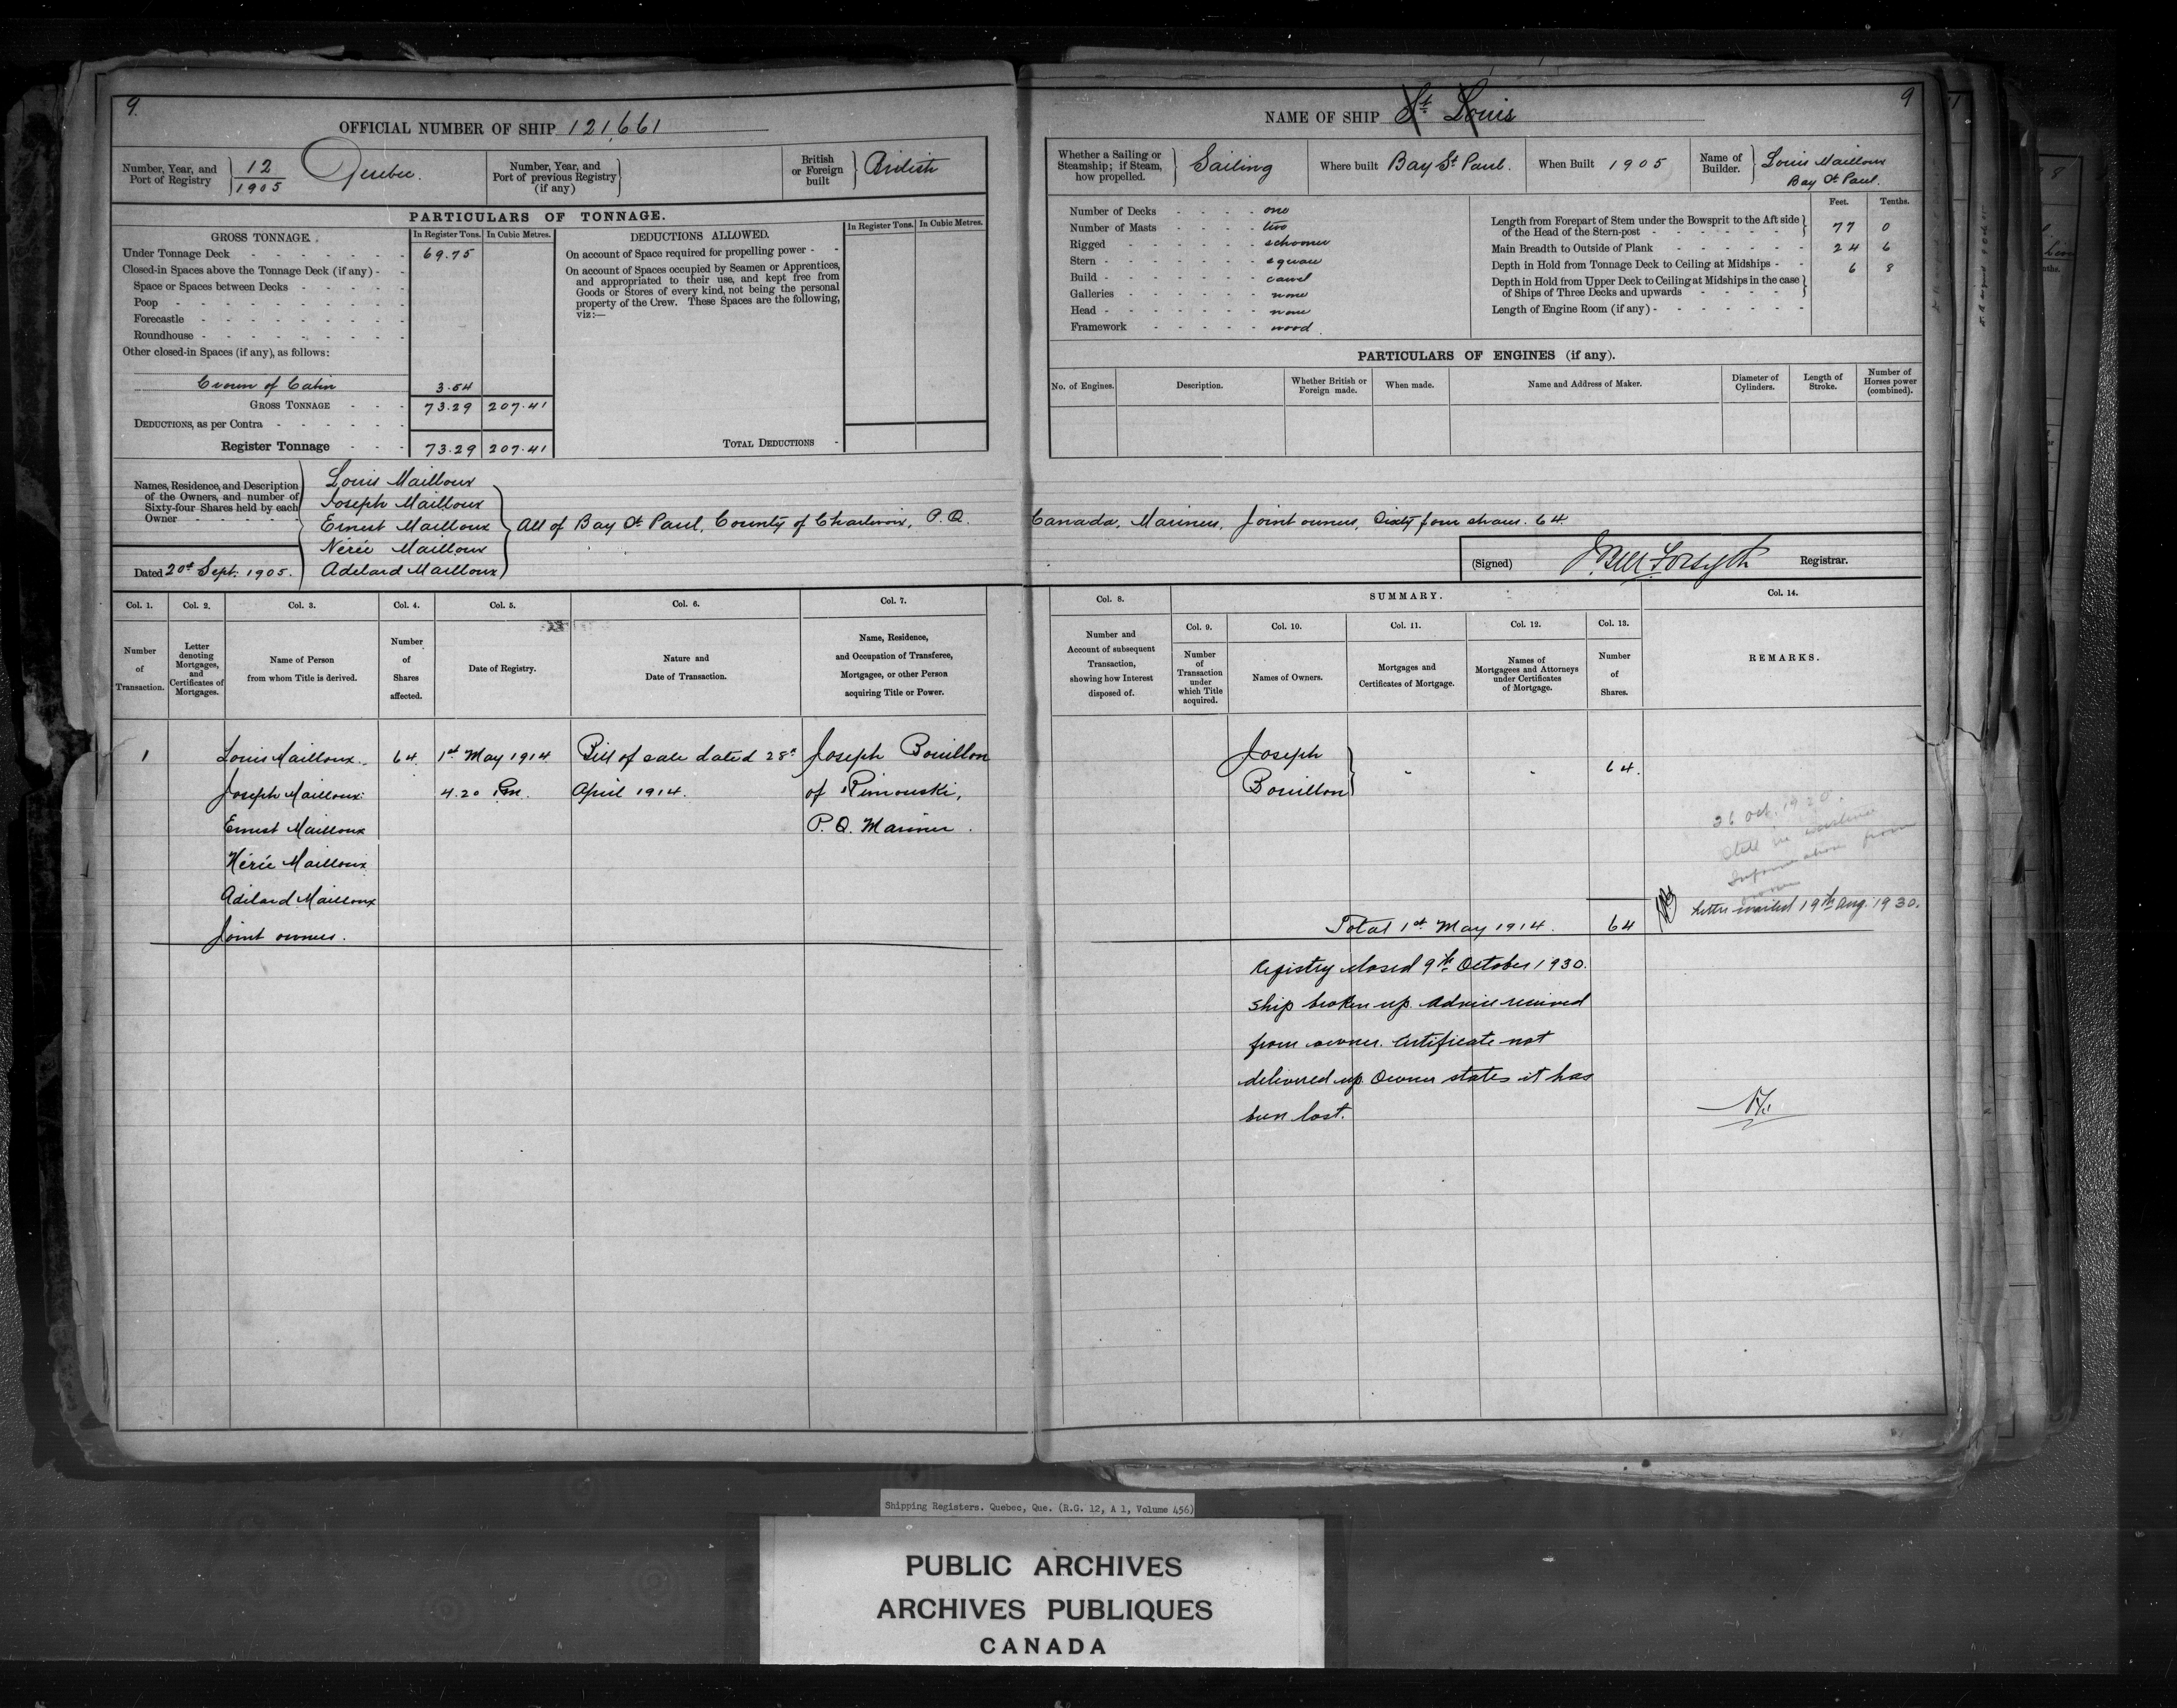 9.
OFFICIAL NUMBER OF SHIP 121,661
Number, Year, and Port of Registry
12
1905
Quebec.
Number, Year, and Port of previous Registry (if any)
British or Foreign built
British
PARTICULARS OF TONNAGE.
GROSS TONNAGE.
In Register Tons.
In Cubic Metres.
Under Tonnage Deck 69.75
Closed-in Spaces above the Tonnage Deck (if any)
Space or Spaces between Decks
Poop
Forecastle
Roundhouse
Other closed-in Spaces (if any), as follows:
Crown of Cabin 3.54
GROSS TONNAGE 73.29 207.41
DEDUCTIONS, as per Contra
Register Tonnage 73.29 207.41
DEDUCTIONS ALLOWED.
In Register Tons.
In Cubic Metres.
On account of Space required for propelling power
On account of Spaces occupied by Seamen or Apprentices,
and appropriated to their use, and kept free from
Goods or Stores of every kind, not being the personal
property of the Crew. These Spaces are the following,
viz:—
TOTAL DEDUCTIONS
Names, Residence, and Description
of the Owners, and number of
Sixty-four Shares held by each
Owner
Dated 20th Sept. 1905.
Louis Mailloux
Joseph Mailloux
Ernest Mailloux
Nérée Mailloux
Adelard Mailloux
All of Bay St Paul, County of Charlevoix, P.Q. Canada, Mariners, Joint owners, Sixty four shares. 64.
Col. 1.
Number
of
Transaction.
Col. 2.
Letter
denoting
Mortgages,
and
Certificates of
Mortgages.
Col. 3.
Name of Person
from whom Title is derived.
Col. 4.
Number
of
Shares
affected.
Col. 5.
Date of Registry.
Col. 6.
Nature and
Date of Transaction.
Col. 7.
Name, Residence,
and Occupation of Transferee,
Mortgagee, or other Person
acquiring Title or Power.
1
Louis Mailloux
Joseph Mailloux
Ernest Mailloux
Nérée Mailloux
Adelard Mailloux
Joint owners.
64.
1st May 1914
4.20 P.m.
Bill of sale dated 28th
April 1914.
Joseph Bouillon
of Rimouski,
P.Q. Mariner.
9
NAME OF SHIP St Louis
Whether a Sailing or
Steamship; if Steam,
how propelled.
Sailing
Where built Bay St Paul.
When Built 1905
Name of
Builder.
Louis Mailloux
Bay St Paul.
Number of Decks one
Number of Masts two
Rigged schooner
Stern square
Build carvel
Galleries none
Head none
Framework wood.
Feet. Tenths.
Length from Forepart of Stem under the Bowsprit to the Aft side
of the Head of the Stern-post 77 0
Main Breadth to Outside of Plank 24 6
Depth in Hold from Tonnage Deck to Ceiling at Midships 6 8
Depth in Hold from Upper Deck to Ceiling at Midships in the case
of Ships of Three Decks and upwards
Length of Engine Room (if any)
PARTICULARS OF ENGINES (if any).
No. of Engines.
Description.
Whether British or
Foreign made.
When made.
Name and Address of Maker.
Diameter of
Cylinders.
Length of
Stroke.
Number of
Horses power
(combined).
(Signed) J. Bell Forsyth Registrar.
Col. 8.
Number and
Account of subsequent
Transaction,
showing how Interest
disposed of.
SUMMARY.
Col. 9.
Number
of
Transaction
under
which Title
acquired.
Col. 10.
Names of Owners.
Col. 11.
Mortgages and
Certificates of Mortgage.
Col. 12.
Names of
Mortgagees and Attorneys
under Certificates
of Mortgage.
Col. 13.
Number
of
Shares.
Col. 14.
REMARKS.
Joseph
Bouillon
64.
26 Oct. 1920.
Still in existence
Information from
owner
Letter mailed 19th Aug. 1930.
Total 1st May 1914. 64
Registry closed 9th October 1930.
Ship broken up. Advice received
from owner. Certificate not
delivered up. Owner states it has
been lost.
Shipping Registers. Quebec, Que. (R.G. 12, A 1, Volume 456)
PUBLIC ARCHIVES
ARCHIVES PUBLIQUES
CANADA